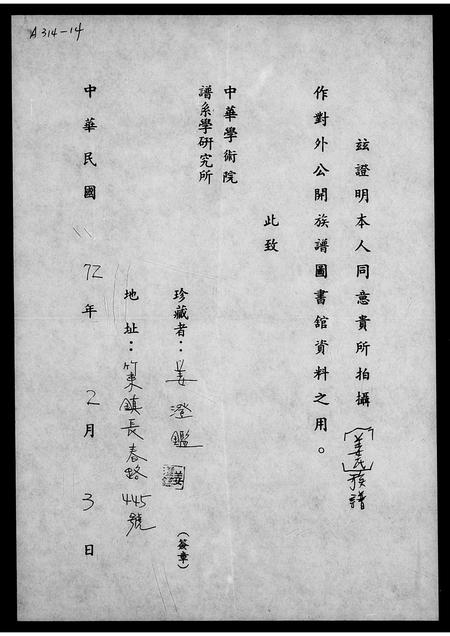 A314-14
茲證明本人同意貴所拍攝〔姜氏〕族譜
作對外公開族譜圖書館資料之用。
此致
中華學術院
譜系學研究所
珍藏者：姜澄鑑 (簽章)
地址：竹東鎮長春路445號
中華民國72年2月3日